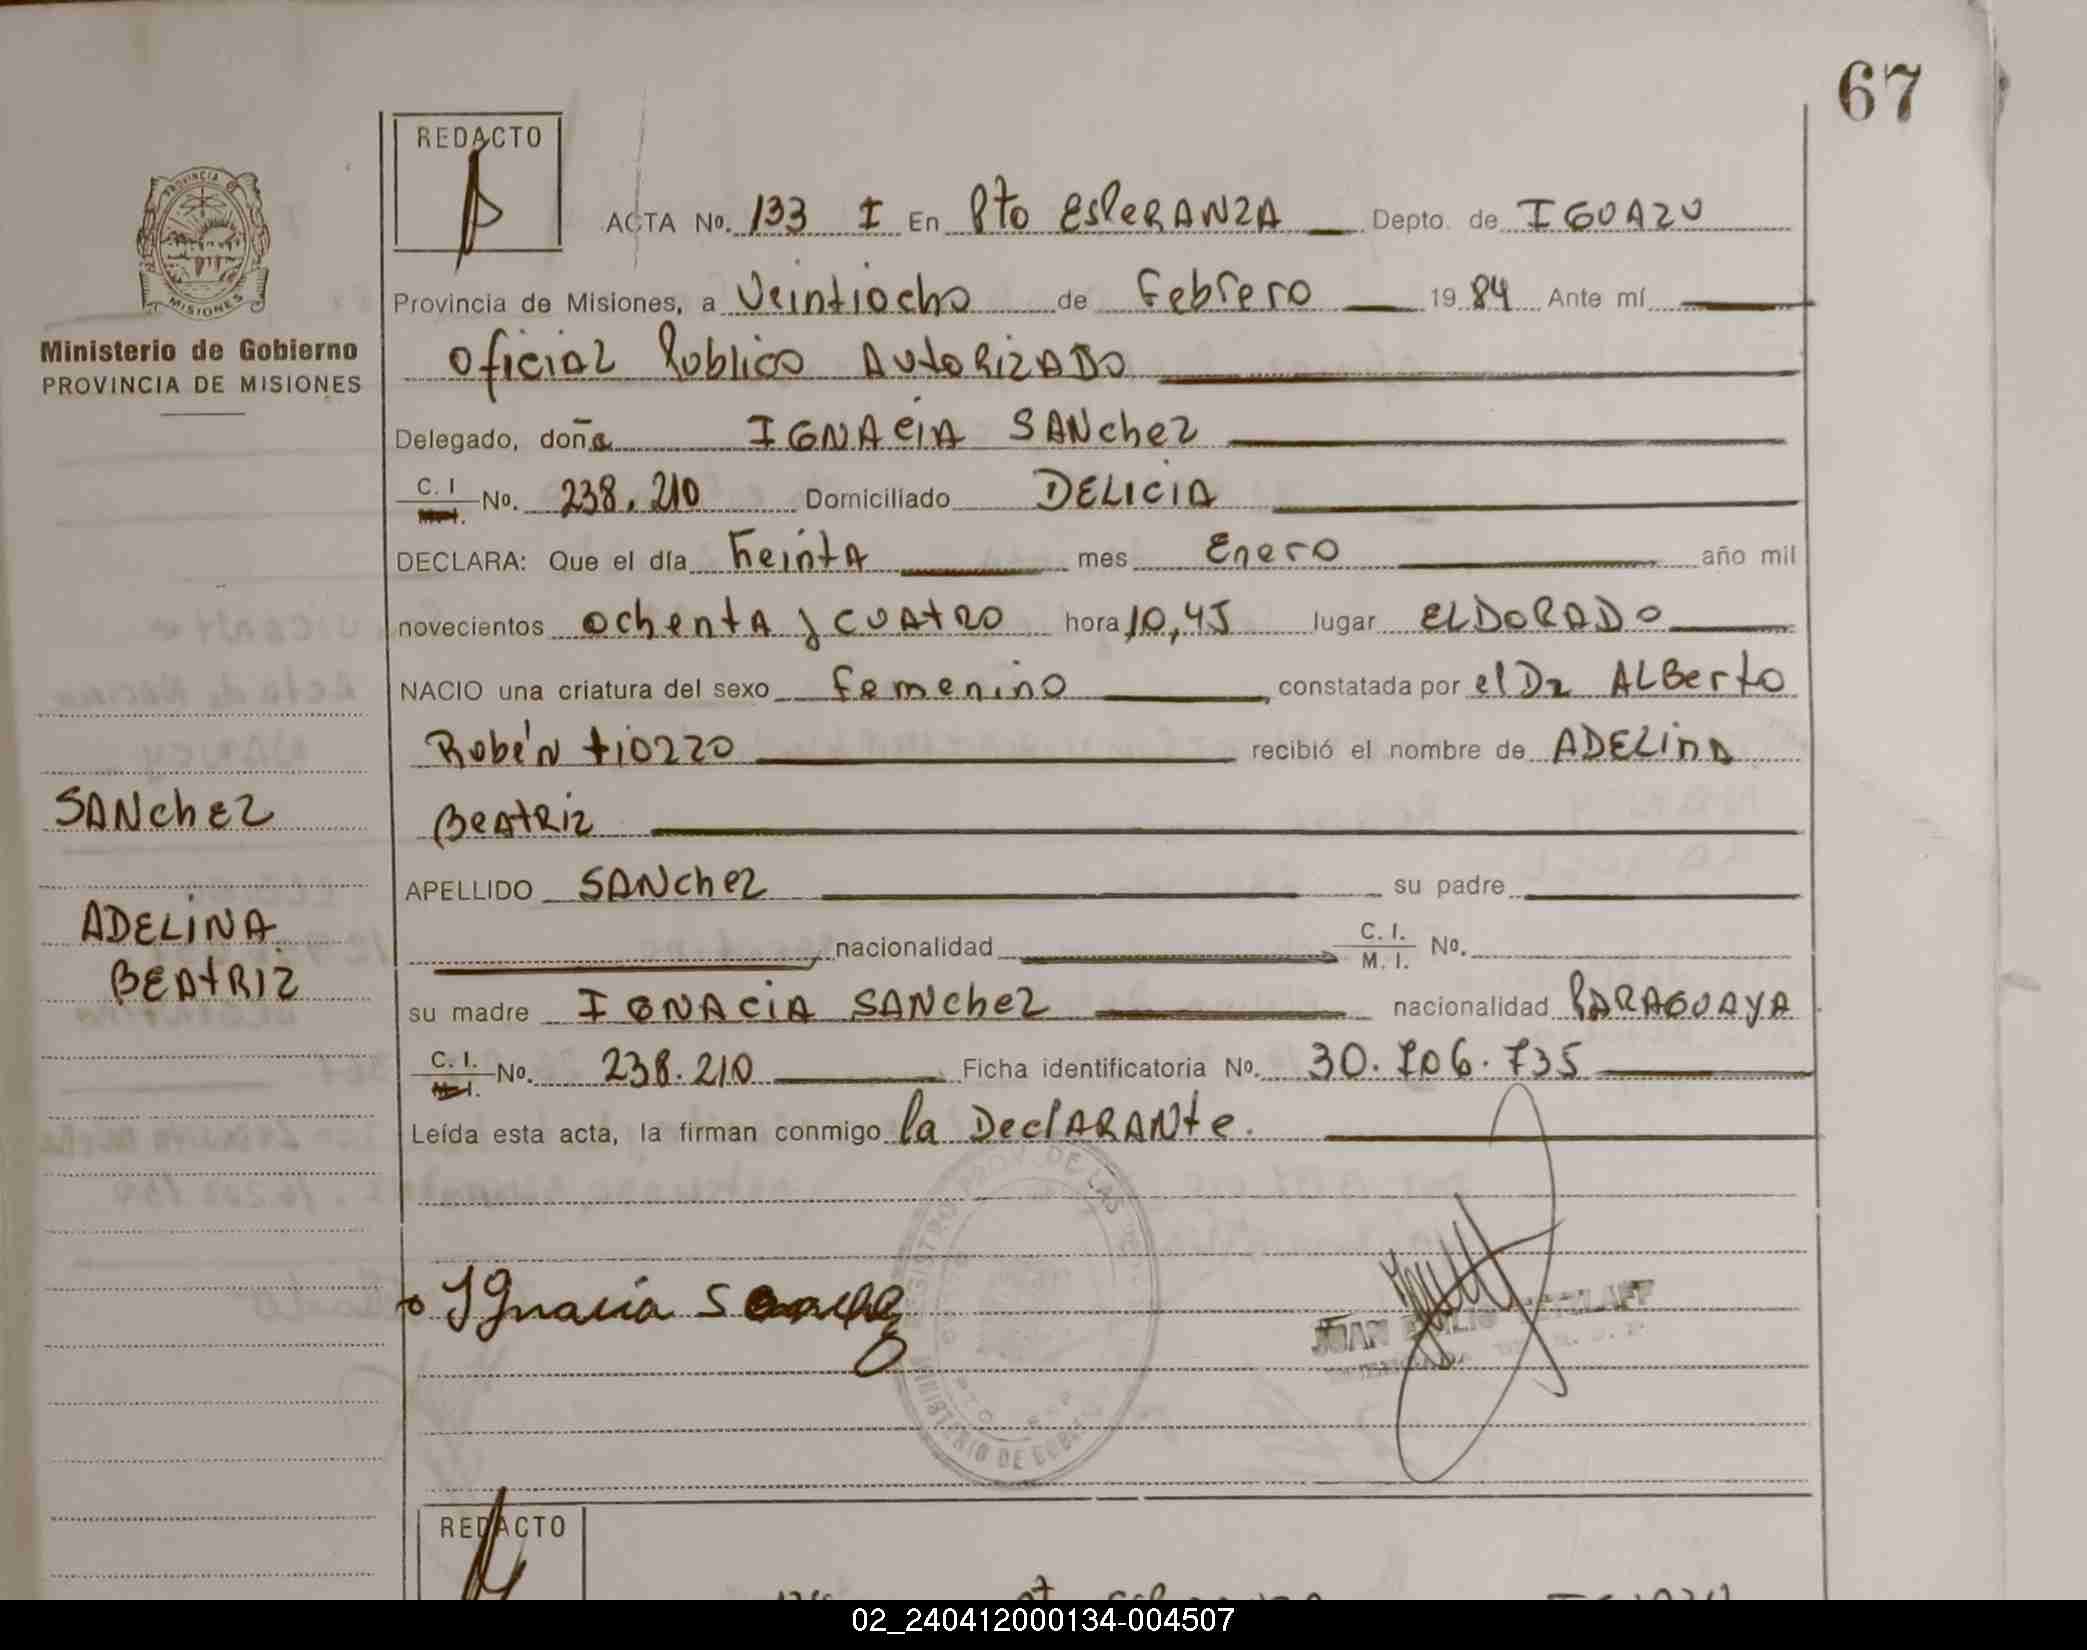 67
REDACTO
ACTA No. 133 I En Pto EspeRANZA Depto. de IGUAZU
Provincia de Misiones, a Veintiocho de Febrero 19 84 Ante mí
Oficial Publico AutoRizADo
Delegado, doña IGNAciA SANchez
C. I No. 238.210 Domiciliado DELICIA
DECLARA: Que el día treintA mes Enero año mil
novecientos ochentA y cuAtro hora 10,45 lugar ELDORADO
NACIO una criatura del sexo femenino, constatada por el Dr ALBerto
Robén tiozzo recibió el nombre de ADELinA
BeAtRiz
APELLIDO SANchez su padre
nacionalidad C. I. M. I. No.
su madre IGNACiA SANchez nacionalidad PARAGUAyA
C. I. No. 238.210 Ficha identificatoria No. 30.706.735
Leída esta acta, la firman conmigo la DeclARANte.
Ignacia
JUAN EMILIO
PROVINCIA DE
MISIONES
Ministerio de Gobierno
PROVINCIA DE MISIONES
SANchEZ
ADELiNA
BEAtRiz
REGISTRO PROV. DE LAS
MINISTERIO DE
REDACTO
02_240412000134-004507